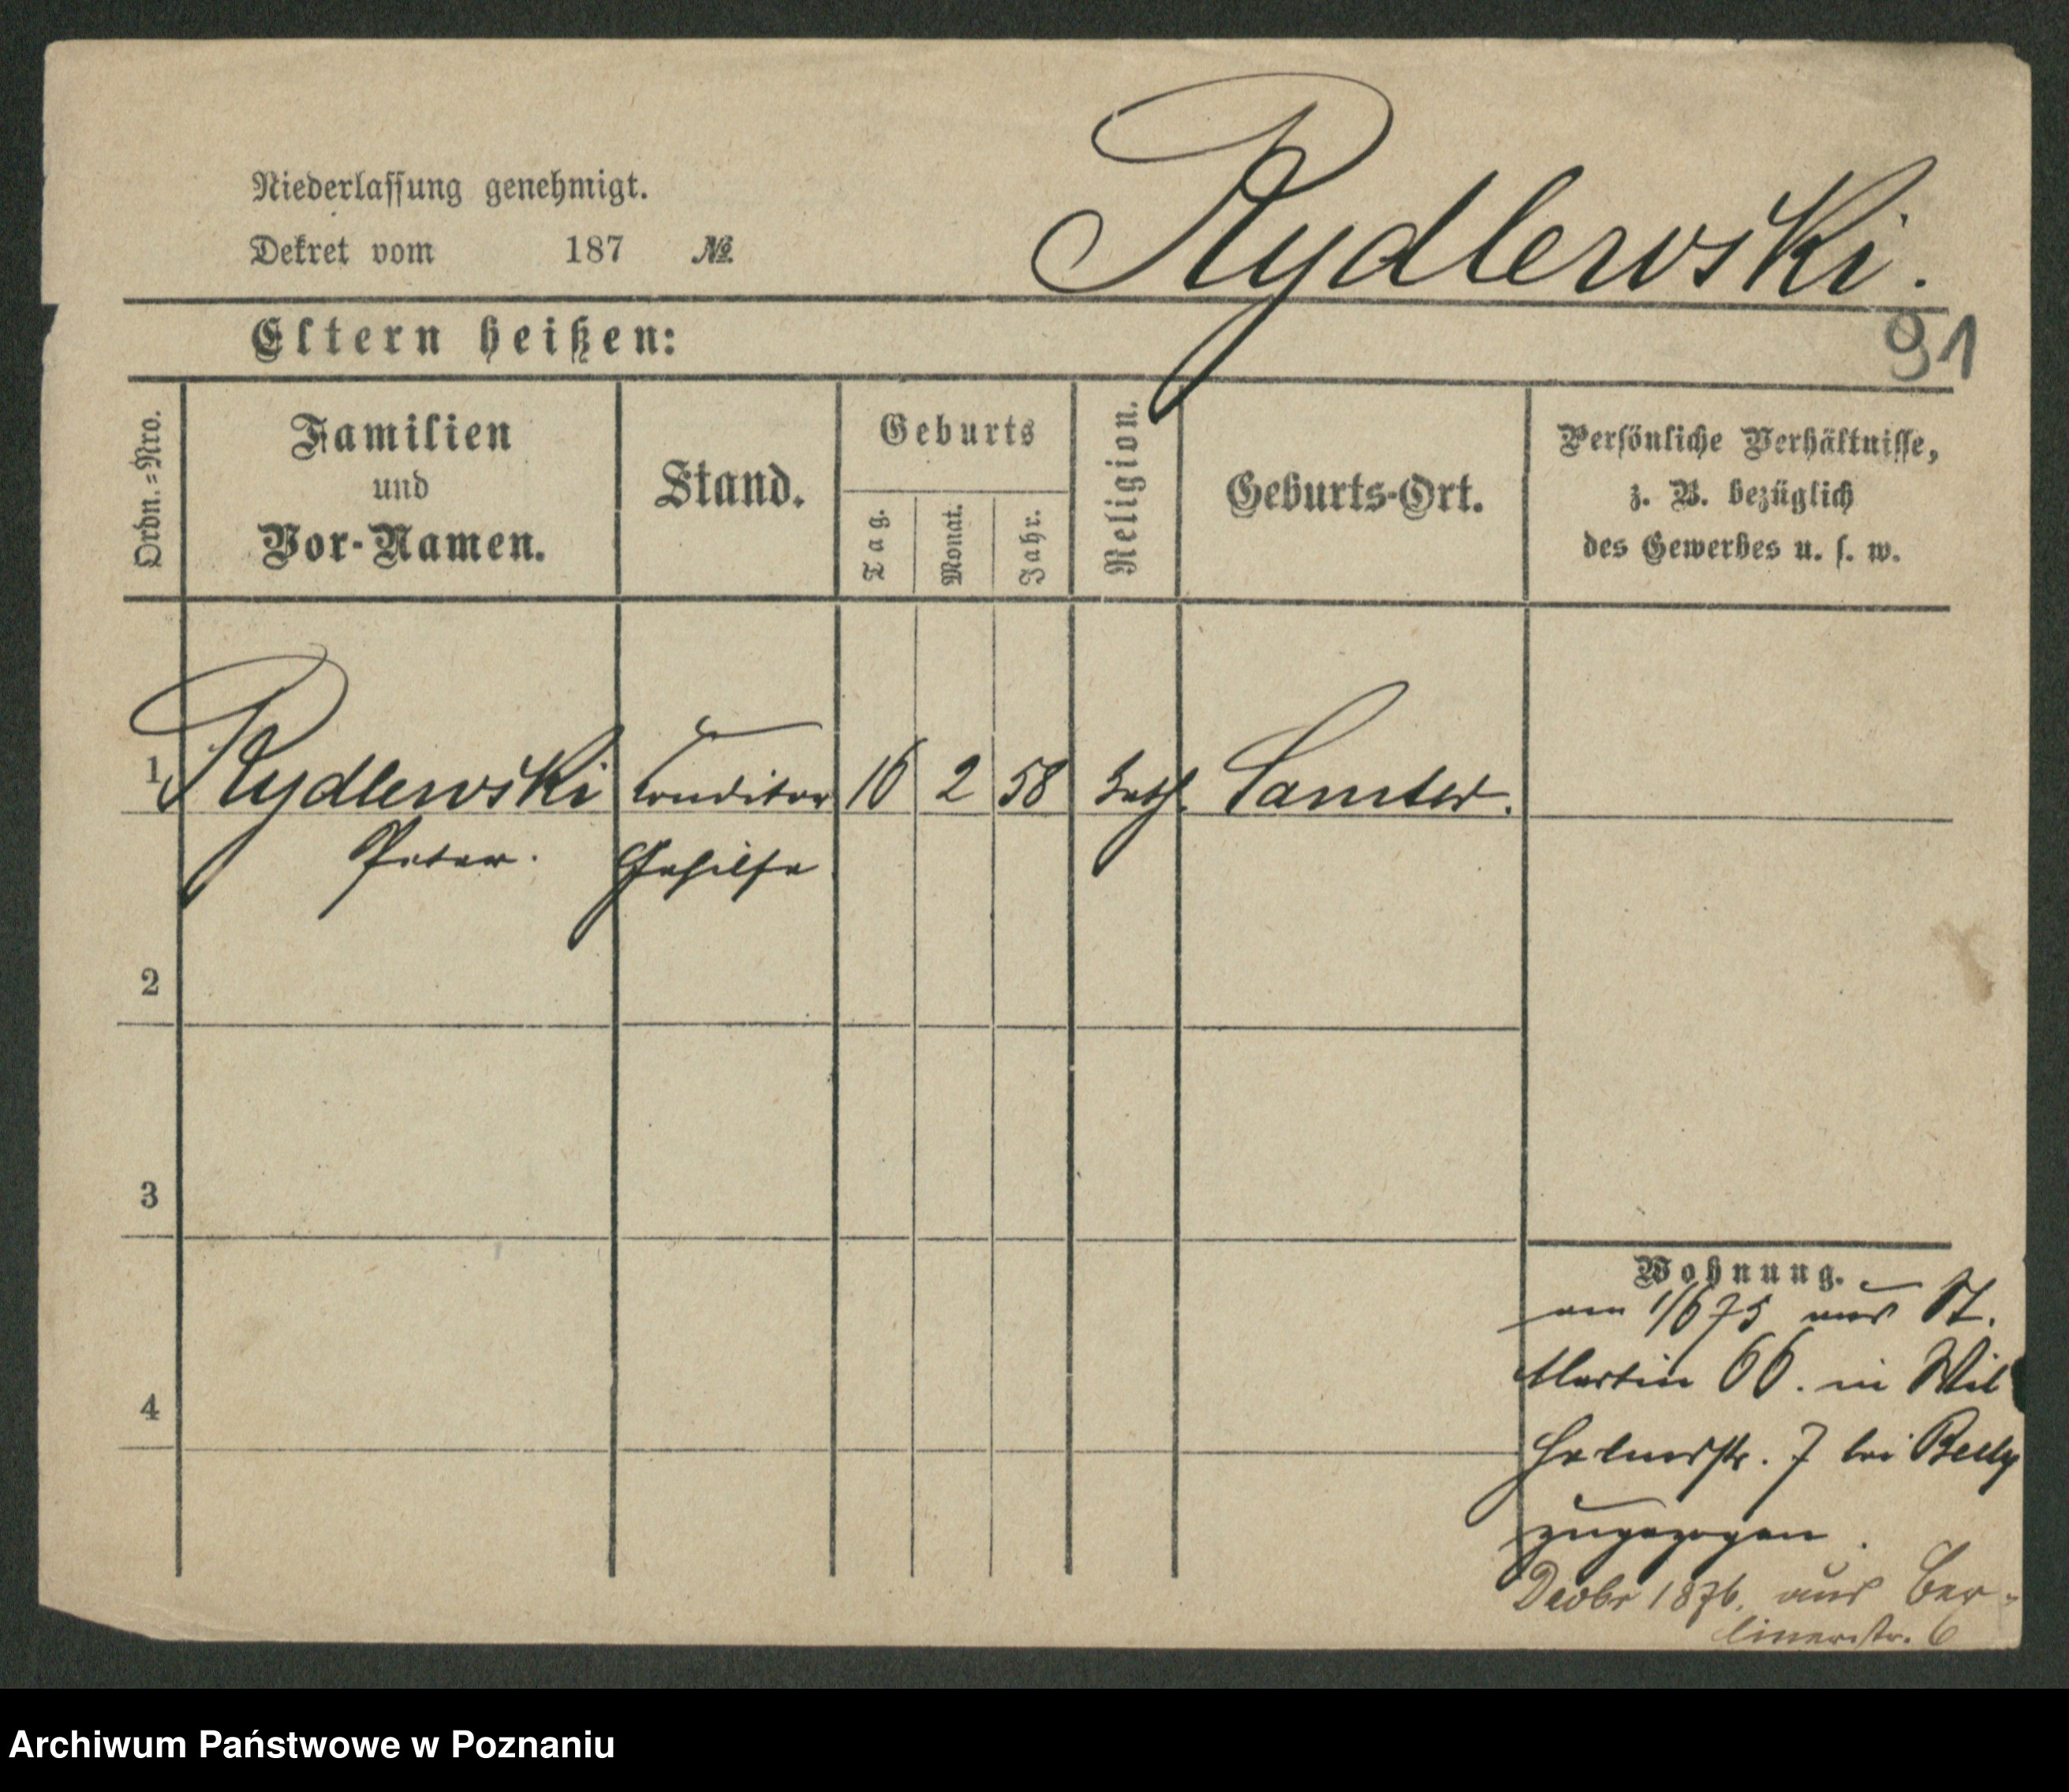 Rydlewski.
Niederlassung genehmigt.
Dekret vom 187 №
91
Eltern heißen:
Ordn.=Nro.
Familien
und
Vor-Namen.
Stand.
Geburts
Tag.
Monat.
Jahr.
Religion.
Geburts-Ort.
Persönliche Verhältnisse,
z. B. bezüglich
des Gewerbes u. s. w.
1 Rydlewski Conditor 16 2 58 kath. Samter.
Peter. Gehilfe
2
3
4
Wohnung.
am 1/6 75 aus St.
Martin 66. in Wil
helmstr. 7 bei Beely
zugezogen.
Decbr 1876. aus Ber-
linerstr. 6
Archiwum Państwowe w Poznaniu